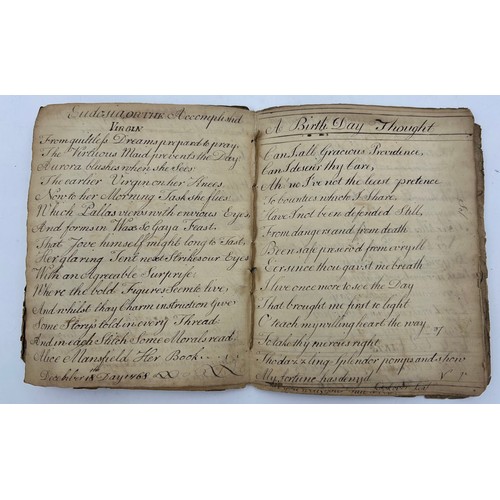 Eudosia or the Accomplished
Virgin
From guiltless Dreams prepard to pray
The Virtuous Maid prevents the Day
Aurora blushes when she Sees
The earlier Virgin on her Knees
Now to her Morning Task she flies
Which Pallas views with envious Eyes
And forms in Wax So Gay a Feast
That Jove himself might long to tast
Her glaring Tent next Strikes our Eyes
With an Agreeable Surprise
Where the bold Figures Seem to live
And whilst thay Charm instruction Give
Some Storys told in every Thread
And in each Stich Some Morals read
Alice Mansfield Her Book
December 18th Day 1768
A Birth Day Thought
Can I, all Gracious Providence,
Can I deserv thy Care,
Ah no I've not the least pretence
To bounties which I Share
Have I not been defended Still,
From dangers and from death
Been safe preserv'd from evry ill
Eer since thou gav'st me breath
I live once more to see the Day
That brought me first to light
O teach my willing heart the way
To take thy mercies right
Tho dazzling Splendor pomp and show
My fortune has deny'd